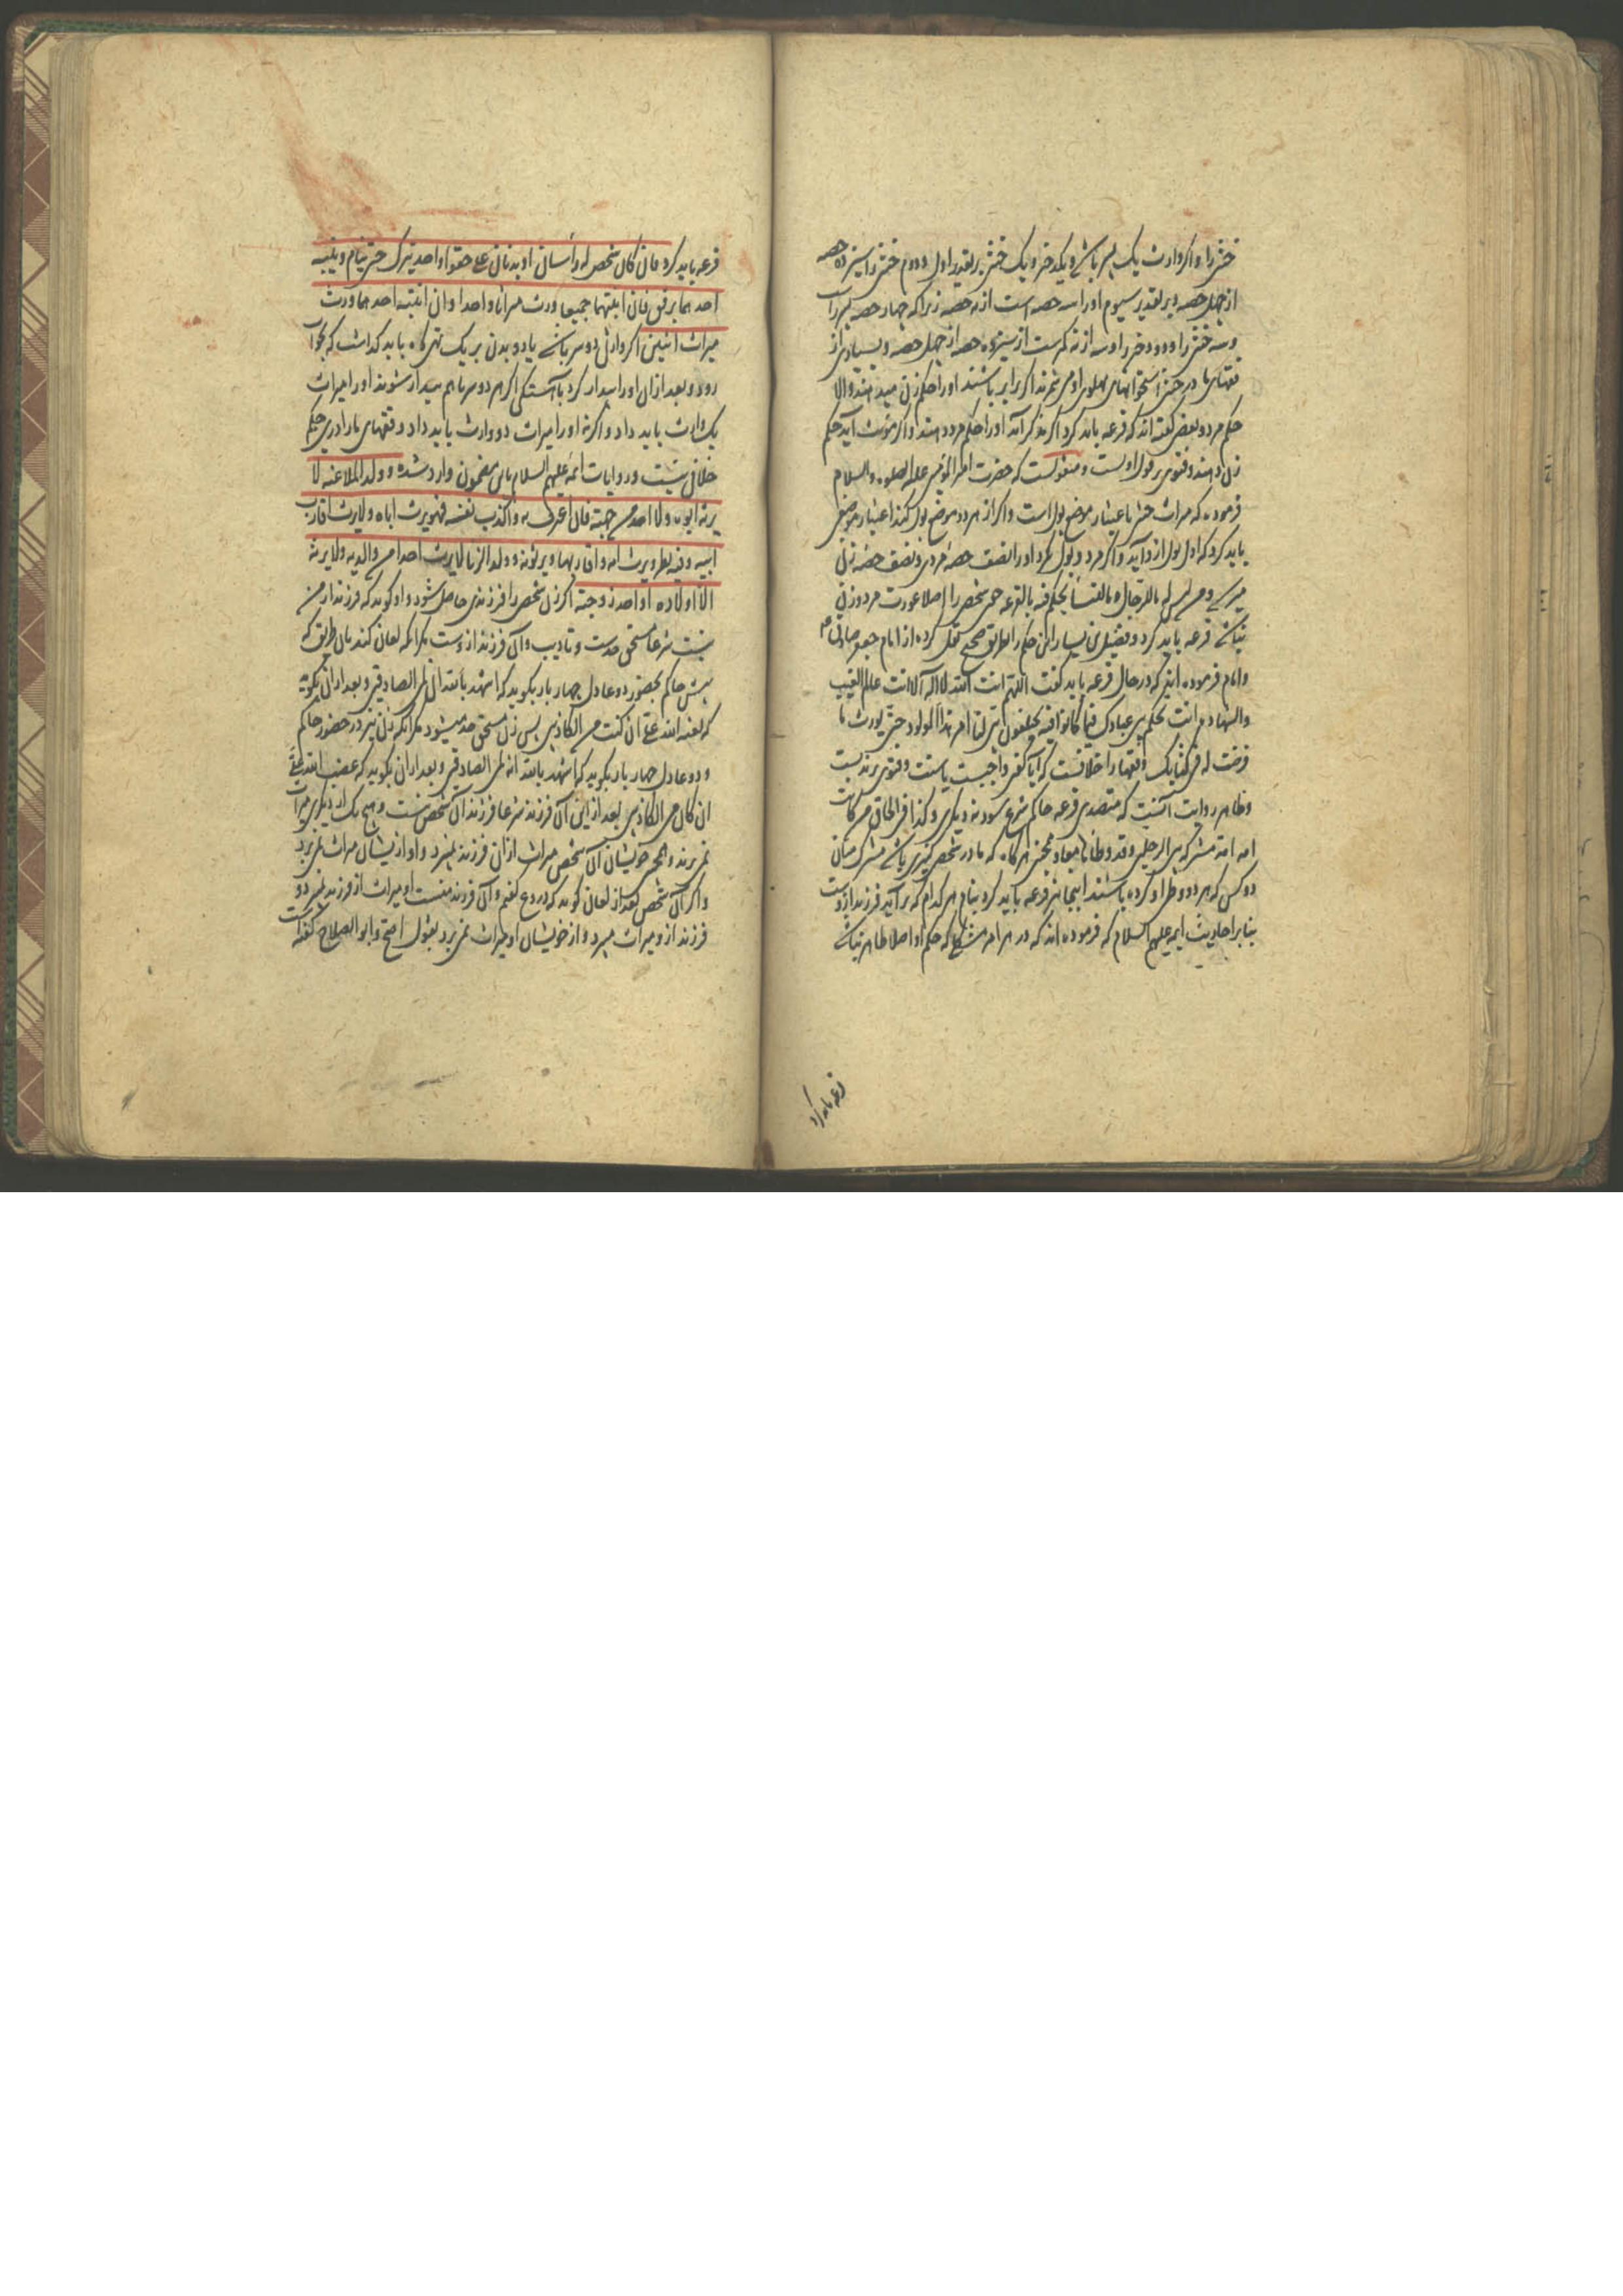 خنثی را و اگر وارث یک پسر باشد و یکدختر و یک خنثی بر تقدیر اول و دوم خنثی را سیزده حصه
از چهل حصه و بر تقدیر سیوم او را سه حصه است از نه حصه زیرا که چهار حصه پسر راست
و سه خنثی را و دو دختر را و سه از نه کمترست از سیزده حصه از چهل حصه و بسیاری از
فقهای ما در خنثی استخوانهای پهلوی او می شمرند اگر برابر باشند او را حکم زن میدهند و الا
حکم مرد و بعضی گفته اند که قرعه باید کرد اگر مذکر آید او را حکم مرد دهند و اگر مؤنث آید حکم
زن دهند و فتوی بر قول اولست و منقولست که حضرت امیر المؤمنین علیه الصلوه و السلام
فرموده که میراث خنثی باعتبار موضع بول است و اگر از هر دو موضع بول کند اعتبار موضعی
باید کرد که اول بول ازو آید و اگر هر دو بول کرد او را نصف حصهٔ مردی و نصف حصهٔ زنی
میرسد و من لیس له ما للرجال و ما للنساء یحکم فیه بالقرعه چون شخصی را اصلا عورت مرد و زن
نباشد قرعه باید کرد و فضیل بن یسار این حکم را بطریق صحیح نقل کرده از امام جعفر صادق ع
و امام فرموده اند که در حال قرعه باید گفت اللهم انت الله لا اله الا انت عالم الغیب
و الشهاده انت تحکم بین عبادک فیما کانوا فیه یختلفون بین لنا امر هذا المولود حتی یورث ما
فرضت له فی کتابک و فقها را خلافست که آیا گفتن واجبست یا سنت و فتوی بر ندبست
و ظاهر روایت آنست که متصدی قرعه حاکم شرع شود نه دیگری و کذا فی الحاق من کانت
امه امة مشترکه بین الرجلین و قد وطئاها معا و همچنین هرگاه که مادر شخصی کنیزی باشد مشترک میان
دو کس که هر دو وطی او کرده باشند اینجا نیز قرعه باید کرد بنام هر کدام که بر آید فرزند ازوست
بنابر احادیث ایمه علیهم السلام که فرموده اند که در هر امر مشکل که حکم او اصلا ظاهر نباشد
قرعه باید کرد
قرعه باید کرد فان کان شخص له رأسان او بدنان علی حقو واحد یترک حتی ینام و ینبه
احدهما برفق فان انتبها جمیعا ورث میراثا واحدا و ان انتبه احدهما ورث
میراث اثنین اگر وارثی دو سر باشد یا دو بدن بر یک تهی گاه باید گذاشت که بخواب
رود و بعد از ان او را بیدار کرد باهستگی اگر هر دو سر با هم بیدار شوند او را میراث
یک وارث باید داد و اگر نه او را میراث دو وارث باید داد و فقهای ما را درین حکم
خلافی نیست و روایات ایمه علیهم السلام باین مضمون وارد شده و ولد الملاعنه لا
یرثه ابوه و لا احد من جهته فان اعترف به و اکذب نفسه فهو یرث اباه و لا یرث اقارب
ابیه و فیه نظر و یرث امه و اقاربها و یرثونه و ولد الزنا لا یرث احدا من والدیه و لا یرثه
الا اولاده او احد زوجیه اگر زن شخصی را فرزندی حاصل شود و او گوید که فرزند از من
نیست شرعا مستحق حدست و تادیب و آن فرزند ازوست مگر آنکه لعان کند بآن طریق که
پیش حاکم بحضور دو عادل چهار بار بگوید که اشهد بالله انی لمن الصادقین و بعد از ان بگوید
که لعنه الله علی ان کنت من الکاذبین پس زن مستحق حد میشود مگر آنکه زن نیز در حضور حاکم
و دو عادل چهار بار بگوید که اشهد بالله انه لمن الصادقین و بعد از ان بگوید که غضب الله علی
ان کان من الکاذبین بعد از این آن فرزند شرعا فرزند آن شخص نیست و هیچ یک از دیگری میراث
نمی برند و همچنین خویشان آن شخص میراث از ان فرزند نمیبرد و او از یشان میراث نمی برد
و اگر آن شخص بعد از لعان گوید که دروغ گفتم و آن فرزند منست او میراث از فرزند نمیبرد و
فرزند ازو میراث میبرد و از خویشان او میراث نمی برد بقول اصح و ابو الصلاح گفته است